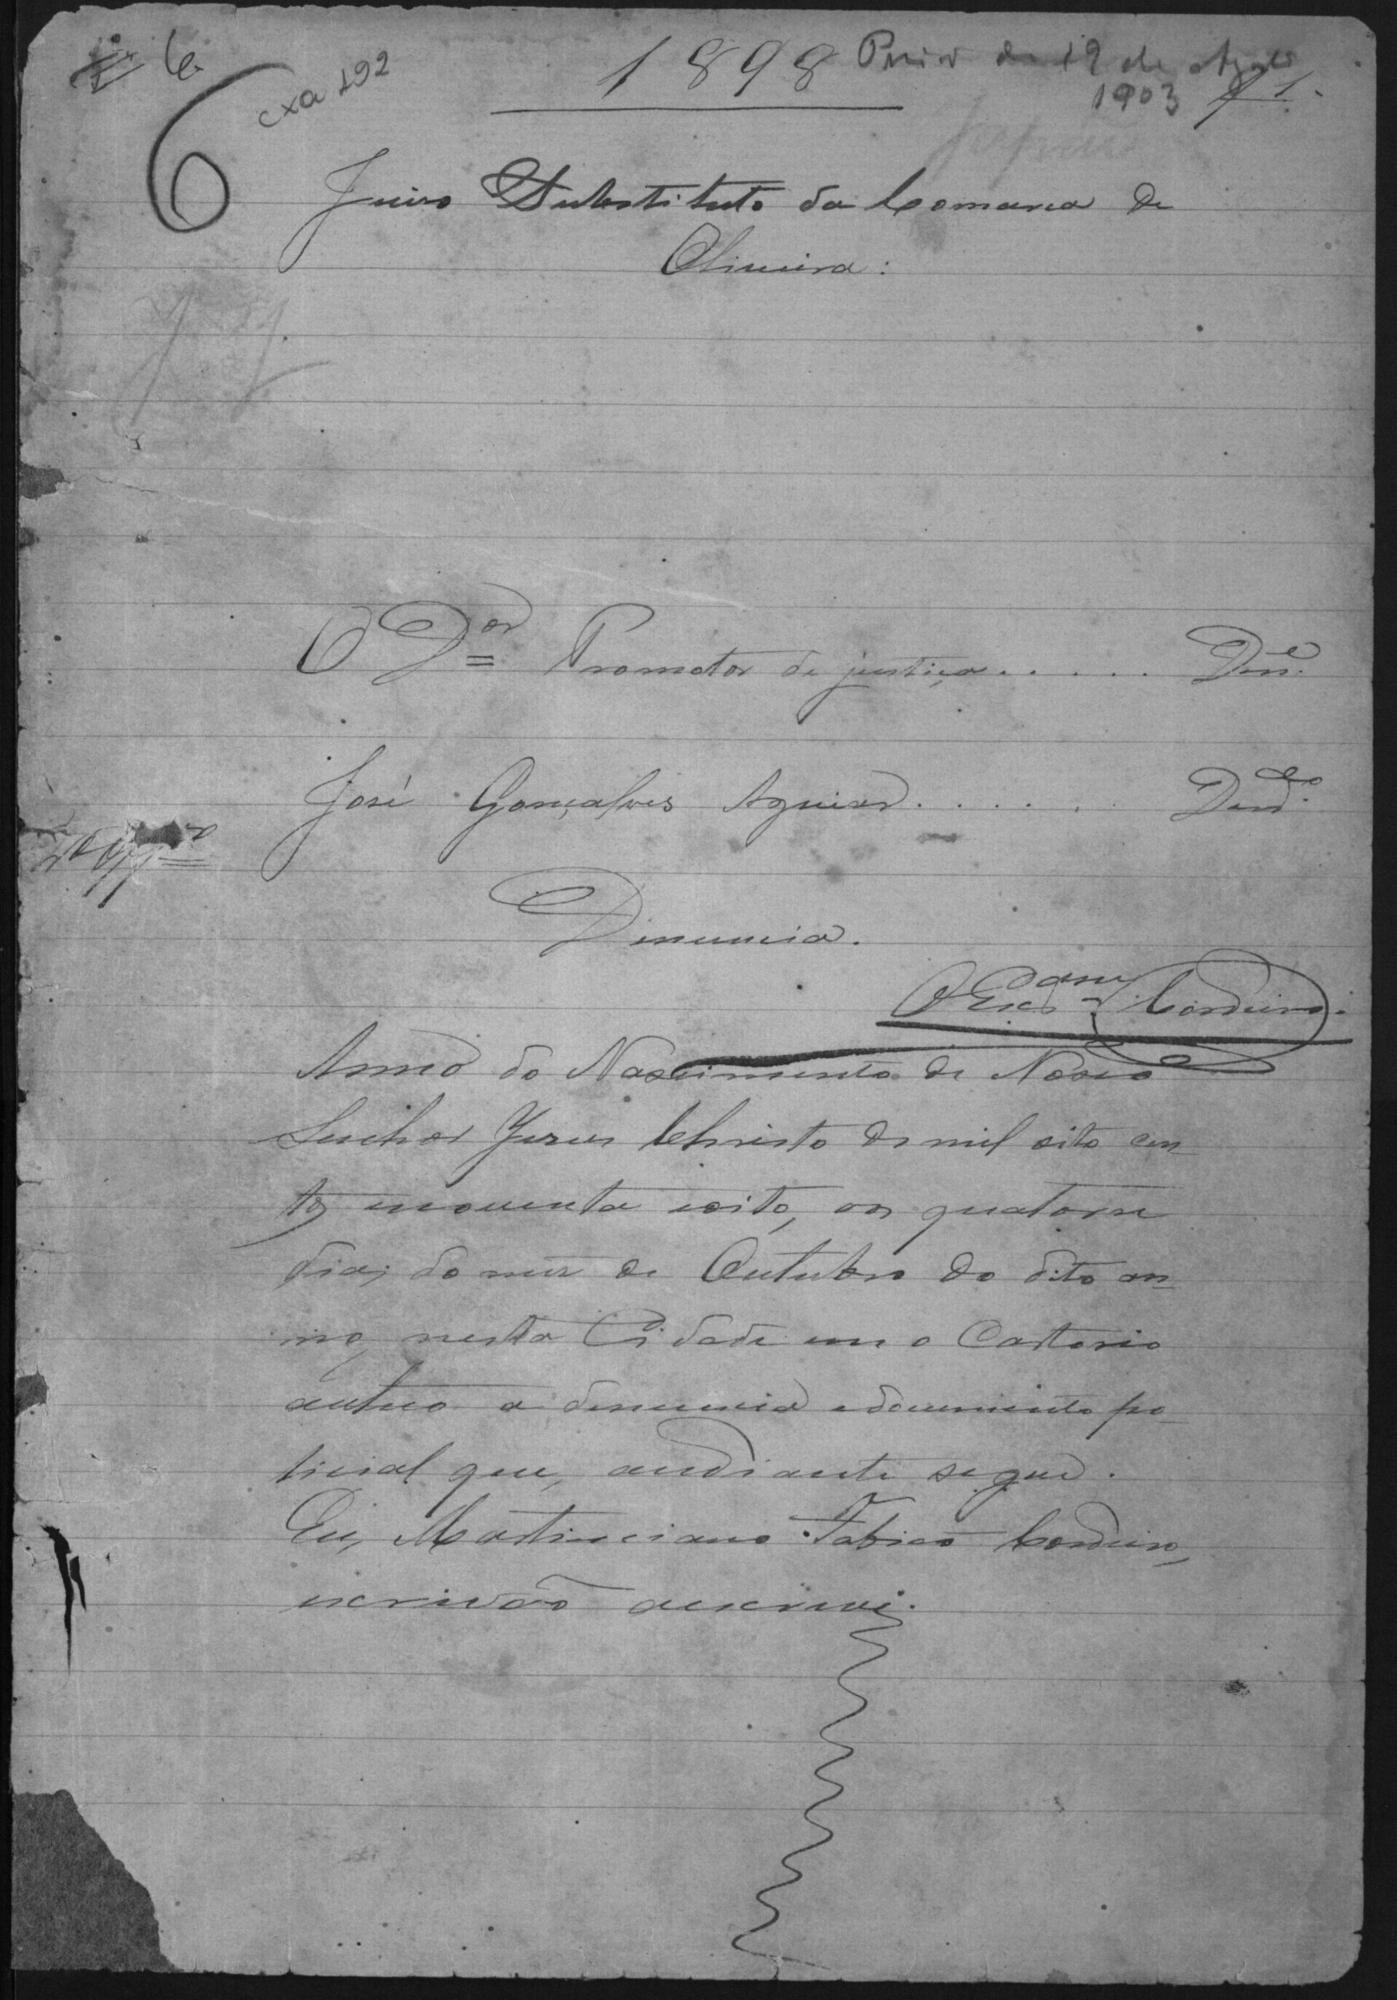 6
6
cxa 192
1898
de 19 de Agosto
1903
1.
Juizo Substituto da Comarca de
Oliveira:
O Dor Promotor de justiça..... Dene.
José Gonçalves Aguiar...... Dendo.
Denuncia.
O Escam Cordeiro.
Anno do Nascimento de Nosso
Senhor Jesus Christo de mil oito cen
tos enoventa eoito, aos quatorse
dias do mez de Outubro do dito an
no, nesta Cidade em o Cartorio
autuo a denuncia edocumento po
licial que, andiante segue.
Eu, Martinciano Fabião Cordeiro,
escrivão aescrevi.